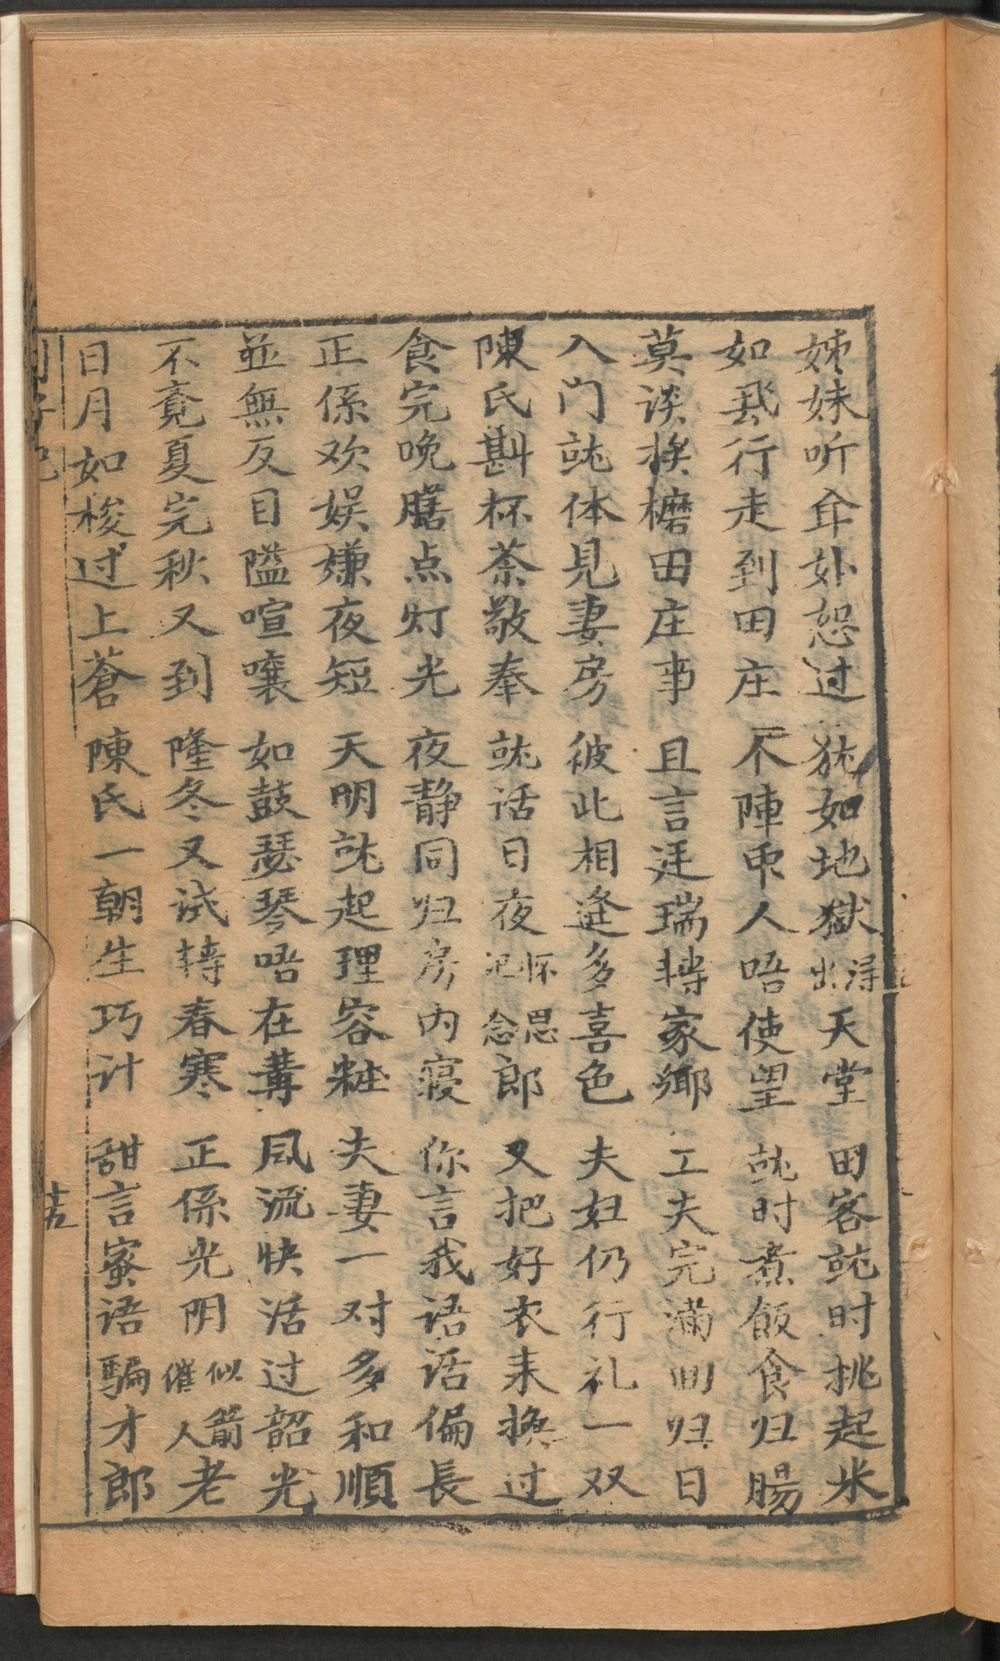 姊妹听㑒奀恕过 犹如地獄得出天堂 田客就时挑起米
如飛行走到田庄 不陣甲人唔使望 就时煮飯食归腸
莫谈挨磨田庄事 且言廷瑞轉家鄉 工夫完滿回归日
入门就体見妻房 彼此相逢多喜色 夫妇仍行礼一双
陳氏斟杯茶敬奉 就话日夜怀思念郎 又把好衣来換过
食完晚膳点灯光 夜静同归房内寝 你言我语话偏長
正係欢娱嫌夜短 天明就起理容粧 夫妻一对多和順
並無反目隘喧嚷 如鼓瑟琴唔在講 風流快活过韶光
不竟夏完秋又到 隆冬又试轉春寒 正係光阴似箭催人老
日月如梭过上蒼 陳氏一朝生巧计 甜言蜜语騙才郎
十五